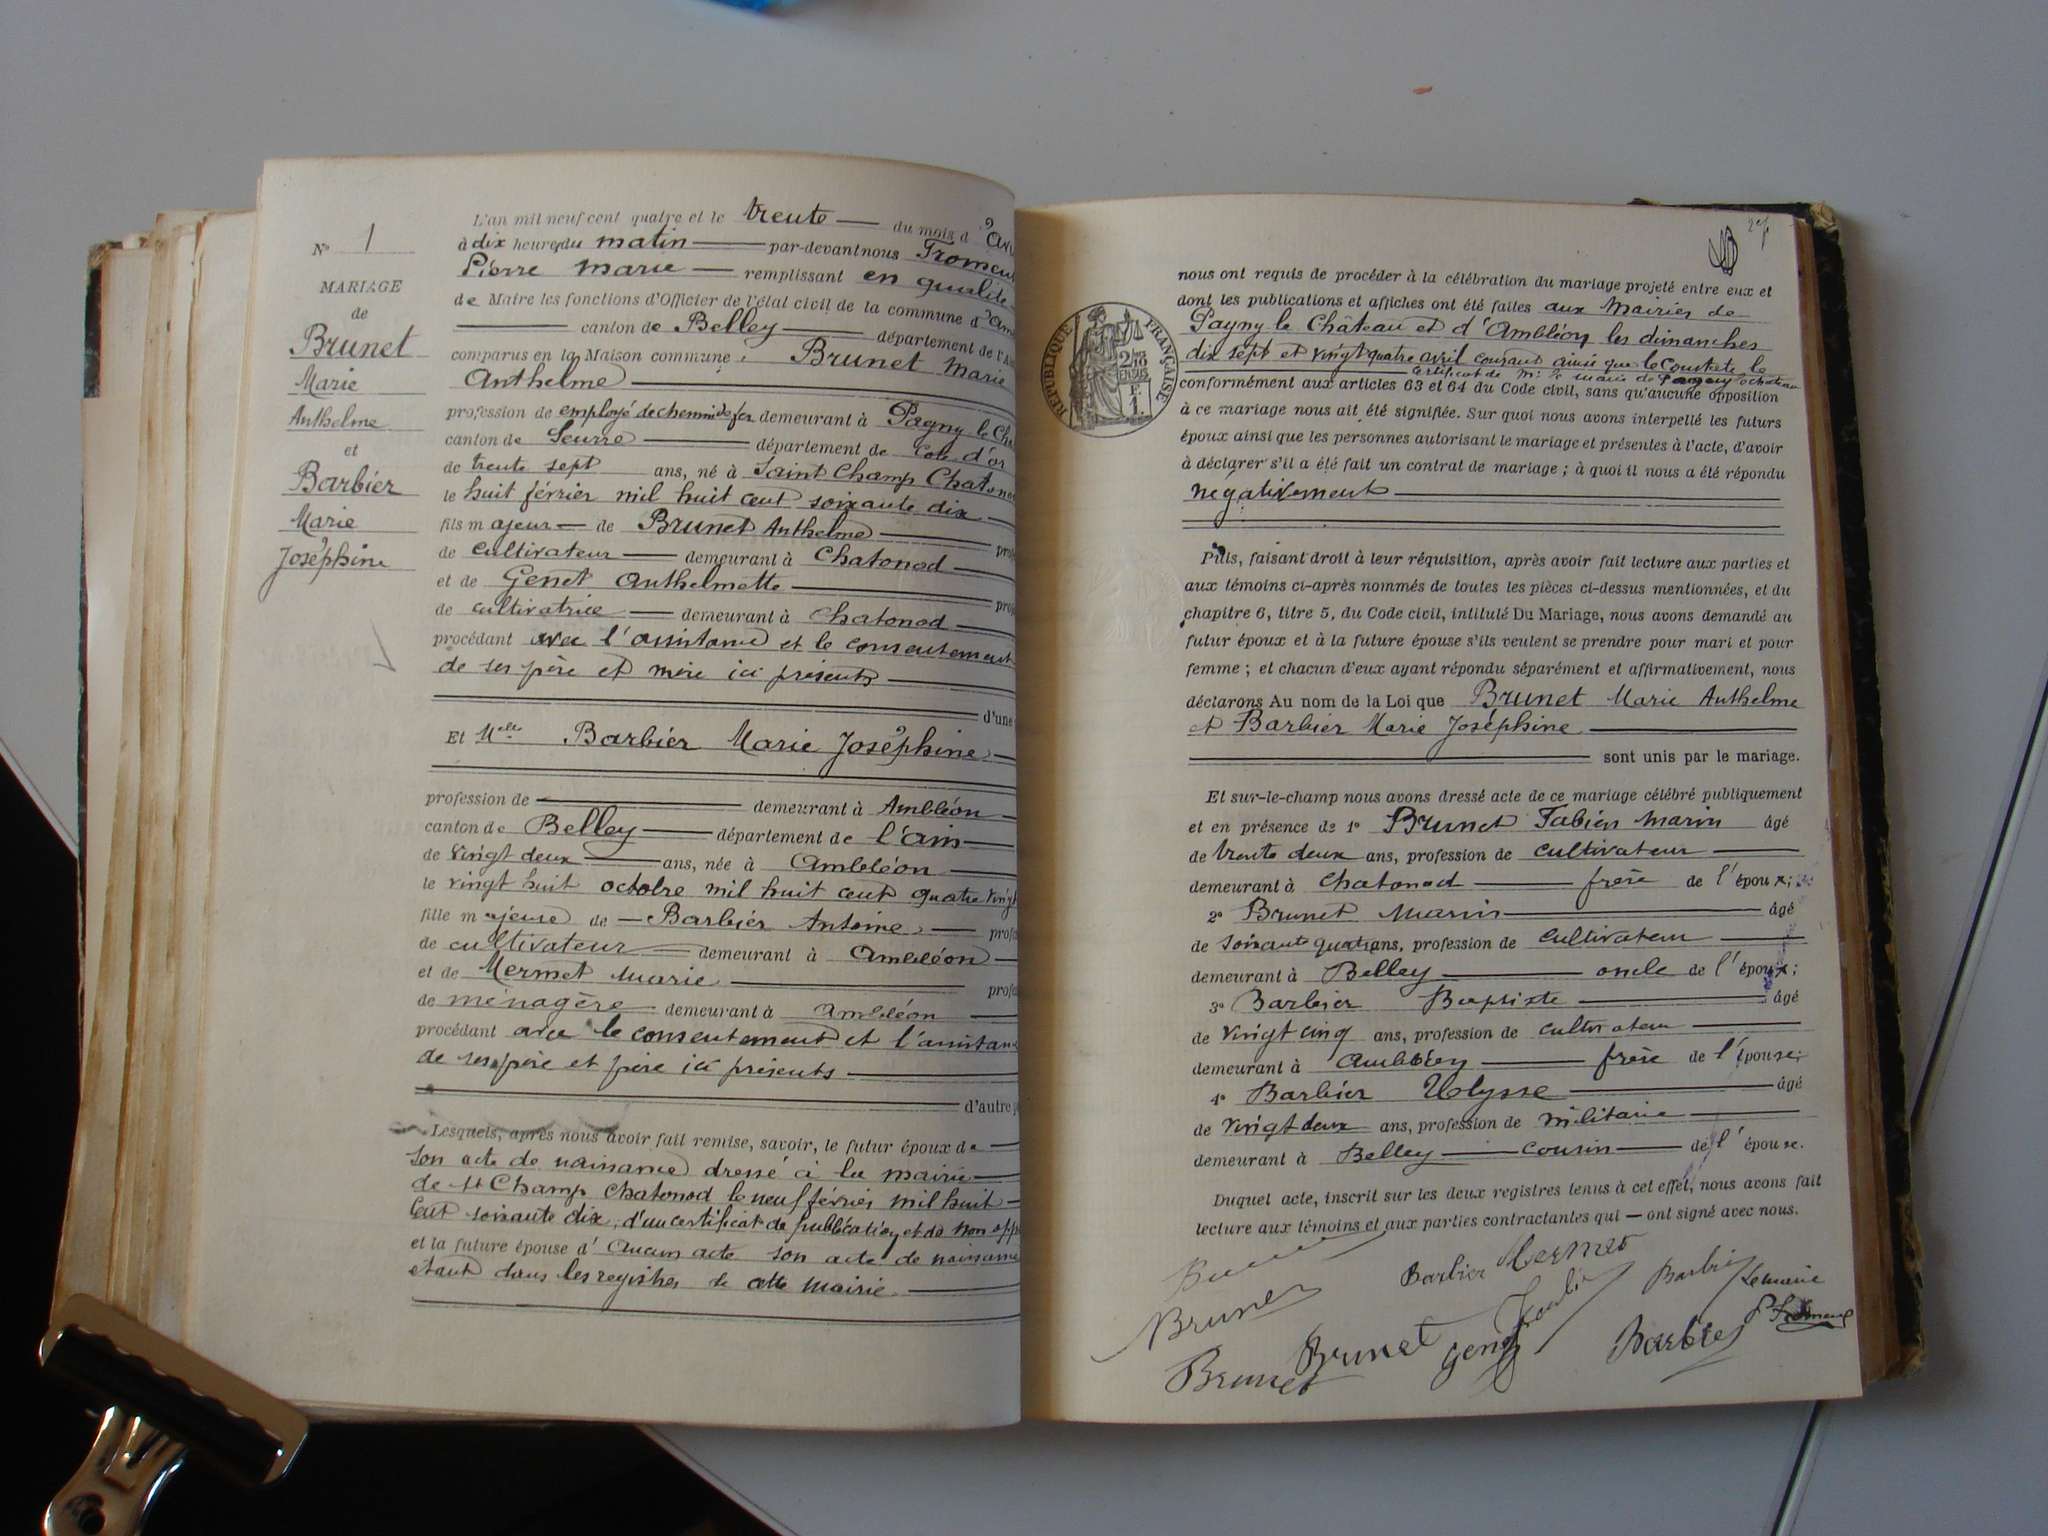 N° 1
MARIAGE
de
Brunet
Marie
Anthelme
et
Barbier
Marie
Joséphine
L'an mil neuf cent quatre et le trente du mois d'
à dix heures du matin par-devant nous
Pierre Marie remplissant en qualité
de Maire les fonctions d'Officier de l'état civil de la commune d'
canton de Belley département de l'
comparus en la Maison commune Brunet Marie
Anthelme
profession de employé de chemin de fer demeurant à Pagny le
canton de Seurre département de Cote d'or
de trente sept ans, né à Saint Champ
le huit février mil huit cent soixante dix
fils majeur de Brunet Anthelme
de cultivateur demeurant à Chatonod
et de Genet Anthelmette
de cultivatrice demeurant à Chatonod
procédant avec l'assistance et le consentement
de ses père et mère ici présents
d'une
Et Melle Barbier Marie Joséphine
profession de demeurant à Ambléon
canton de Belley département de l'ain
de vingt deux ans, née à Ambléon
le vingt huit octobre mil huit cent quatre vingt
fille majeure de Barbier Antoine
de cultivateur demeurant à Ambléon
et de Mermet Marie
de ménagère demeurant à Ambléon
procédant avec le consentement et
de ses père et père ici présents
d'autre
Lesquels, après nous avoir fait remise, savoir, le futur époux de
son acte de naissance dressé à la mairie
de St Champ Chatonod le neuf février mil huit
cent soixante dix, d'un certificat de publication et de non
et la future épouse d'aucun acte son acte de naissance
étant dans les registres de cette mairie
RÉPUBLIQUE FRANÇAISE
2/10
EN SUS
1 F.
nous ont requis de procéder à la célébration du mariage projeté entre eux et
dont les publications et affiches ont été faites aux Mairies de
Pagny le Château et d'Ambléon les dimanches
dix sept et vingt quatre avril courant ainsi que le Constate le
certificat de Mr le maire de Pagny le chateau
conformément aux articles 63 et 64 du Code civil, sans qu'aucune opposition
à ce mariage nous ait été signifiée. Sur quoi nous avons interpellé les futurs
époux ainsi que les personnes autorisant le mariage et présentes à l'acte, d'avoir
à déclarer s'il a été fait un contrat de mariage ; à quoi il nous a été répondu
négativement
Puis, faisant droit à leur réquisition, après avoir fait lecture aux parties et
aux témoins ci-après nommés de toutes les pièces ci-dessus mentionnées, et du
chapitre 6, titre 5, du Code civil, intitulé Du Mariage, nous avons demandé au
futur époux et à la future épouse s'ils veulent se prendre pour mari et pour
femme ; et chacun d'eux ayant répondu séparément et affirmativement, nous
déclarons Au nom de la Loi que Brunet Marie Anthelme
et Barbier Marie Joséphine
sont unis par le mariage.
Et sur-le-champ nous avons dressé acte de ce mariage célébré publiquement
et en présence de 1° Brunet Fabien Marin âgé
de trente deux ans, profession de cultivateur
demeurant à Chatonod frère de l'époux;
2° Brunet Marin âgé
de soixante quatre ans, profession de cultivateur
demeurant à Belley oncle de l'époux;
3° Barbier Baptiste âgé
de vingt cinq ans, profession de cultivateur
demeurant à Ambléon frère de l'épouse;
4° Barbier Ulysse âgé
de vingt deux ans, profession de militaire
demeurant à Belley cousin de l'épouse.
Duquel acte, inscrit sur les deux registres tenus à cet effet, nous avons fait
lecture aux témoins et aux parties contractantes qui — ont signé avec nous.
Barbier Mermet
Brunet
Le maire
Brunet
Genet
Barbier
Brunet